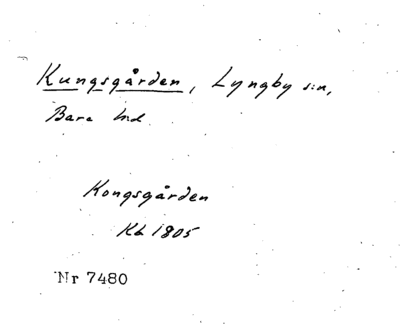 Kungsgården, Lyngby s:n,
Bara hd
Kongsgården
Kb 1805
Nr 7480